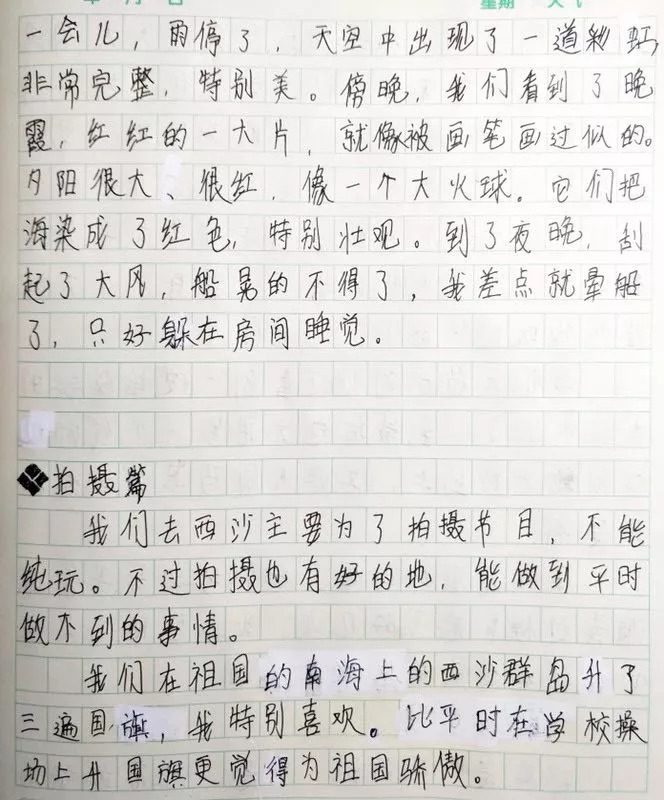 星期 天气
一会儿，雨停了，天空中出现了一道彩虹，
非常完整，特别美。傍晚，我们看到了晚
霞，红红的一大片，就像被画笔画过似的。
夕阳很大、很红，像一个大火球。它们把
海染成了红色，特别壮观。到了夜晚，刮
起了大风，船晃的不得了，我差点就晕船
了，只好躲在房间睡觉。
❖拍摄篇
我们去西沙主要为了拍摄节目，不能
纯玩。不过拍摄也有好的地，能做到平时
做不到的事情。
我们在祖国的南海上的西沙群岛升了
三遍国旗，我特别喜欢。比平时在学校操
场上升国旗更觉得为祖国骄傲。